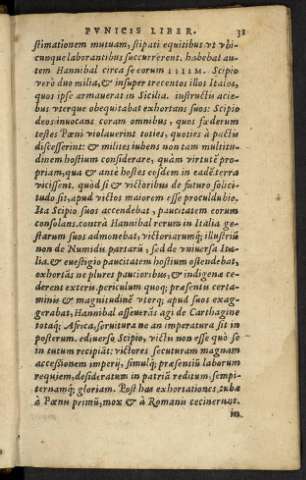 PVNICIS LIBER. 38
stimationem mutuam, stipati equitibus vt vbi-
cunque laborantibus succurrerent. habebat au-
tem Hannibal circa se eorum IIIIM. Scipio
verò duo milia, & insuper trecentos illos Italos,
quos ipse armauerat in Sicilia. instructis acie-
bus vterque obequitabat exhortans suos: Scipio
deos inuocans coram omnibus, quos fœderum
testes Pœni violauerint toties, quoties à pactis
discesserint: & milites iubens non tam multitu-
dinem hostium considerare, quàm virtutẽ pro-
priam, qua & ante hostes eosdem in eadẽ terra
vicissent. quòd si & victoribus de futuro solici-
tudo sit, apud victos maiorem esse procul dubio.
Ita Scipio suos accendebat, paucitatem eorum
consolans. contrà Hannibal rerum in Italia ge-
starum suos admonebat, victoriarumq́; illustriũ
non de Numidis partarũ, sed de vniuersa Ita-
lia. & è vestigio paucitatem hostium ostendebat,
exhortãs ne plures paucioribus, & indigenæ ce-
derent exteris. periculum quoq; præsentis certa-
minis & magnitudinẽ vterq; apud suos exag-
gerabat, Hannibal asseuerãs agi de Carthagine
totaq́; Africa, seruitura ne an imperatura sit in
posterum. ediuerso Scipio, victis non esse quò se
in tutum recipiãt: victores secuturam magnam
accessionem imperij, simulq́; præsentiũ laborum
requiem, desideratum in patriã reditum, sempi-
ternamq́; gloriam. Post has exhortationes, tubæ
à Pœnis primũ, mox & à Romanis cecinerunt.
in